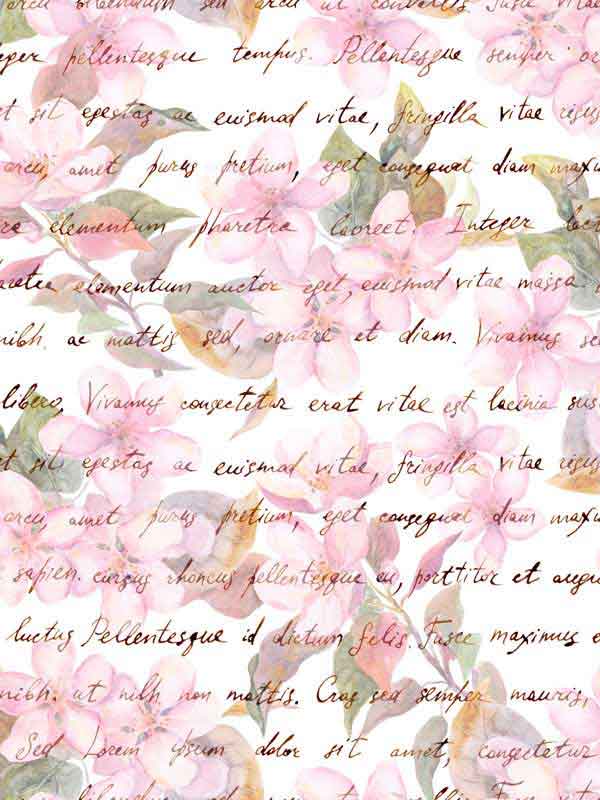 arcu bibendum sed arcu ut convallis Fusce vitae
eger pellentesque tempus. Pellentesque semper or
t sit egestas ac euismod vitae, fringilla vitae risus
arcu, amet purus pretium, eget consequat diam maxim
re elementum pharetra laoreet. Integer lect
haretra elementum auctor eget, euismod vitae massa.
nibh. ac mattis sed, ornare et diam. Vivamus se
libero. Vivamus consectetur erat vitae est lacinia sus
t sit egestas ac euismod vitae, fringilla vitae risus
arcu, amet purus pretium, eget consequat diam maxim
sapien. cursus rhoncus pellentesque eu, porttitor et augu
luctus Pellentesque id dictum felis. Fusce maximus e
nibh. ut nibh non mattis. Cras sed semper mauris,
Sed Lorem ipsum dolor sit amet, consectetur